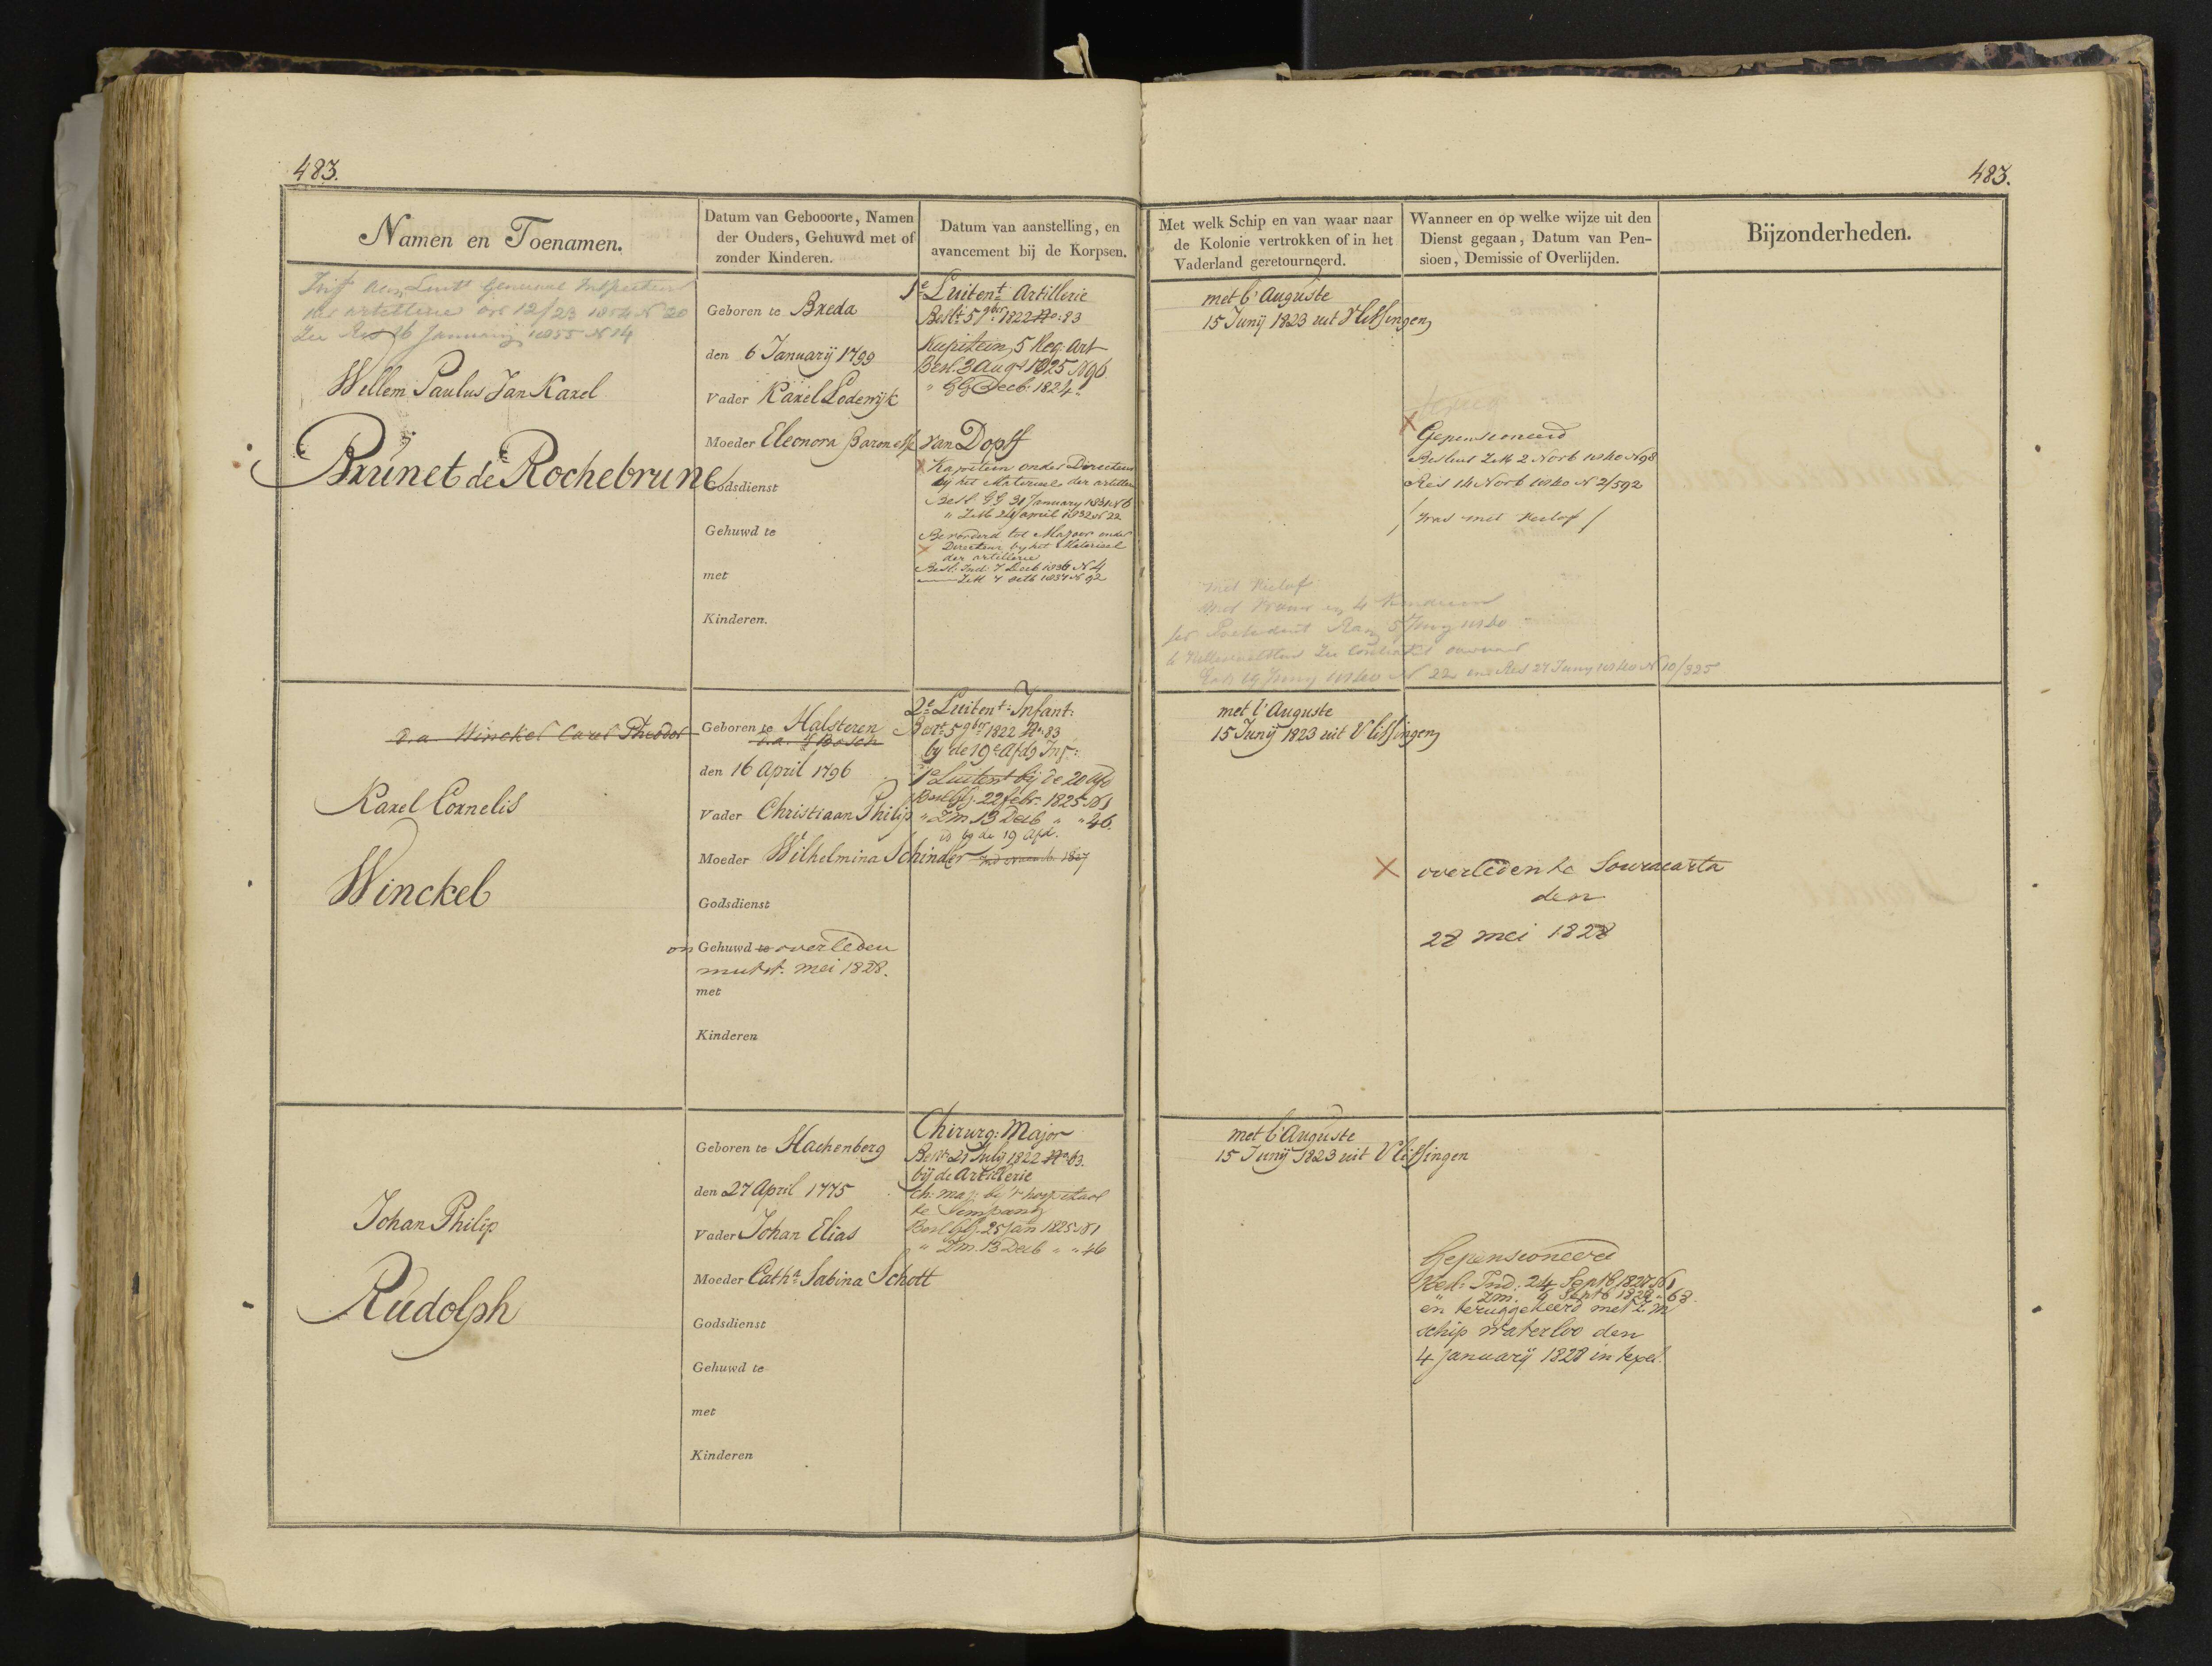 483.
483.
Namen en Toenamen.
Datum van Gebooorte, Namen
der Ouders, Gehuwd met of
zonder Kinderen.
Datum van aanstelling, en
avancement bij de Korpsen.
Met welk Schip en van waar naar
de Kolonie vertrokken of in het
Vaderland geretourneerd.
Wanneer en op welke wijze uit den
Dienst gegaan, Datum van Pen-
sioen, Demissie of Overlijden.
Bijzonderheden.
Luitt Generaal Inspecteur
der artellerie 12/23 1854 N 20
Zie Res 26 January 1855 N 14
Willem Paulus Jan Karel
Brunet de Rochebrune
Geboren te Breda
den 6 Januarij 1799
Vader Karel Lodewijk
Moeder Eleonora Baronesse van Dopff
Godsdienst
Gehuwd te
met
Kinderen.
1e Luitent Artillerie
Beslt 5 9ber 1822 No: 83
Kapitein 5 Reg: Art
Besl. 3 Augt 1825 N 96
" GG Decb: 1824
Kapitein onder Directeur
bij het Materieel der artillerie
Besl. GG 31 January 1831 N 6
" ZM 24 april 1832 N 22
Bevorderd tot Majoor onder
Directeur by het Materieel
der artillerie
Besl: Ind: 7 Decb 1836 N 4
ZM 7 Octb 1837 N 92
met l'Auguste
15 Junij 1823 uit Vlissingen
Gepensioneerd
Besluit ZM 2 Novb 1840 N 98
Res 14 Novb 1840 N 2/592
/ was met verlof /
met verlof
met Vrouw en 4 kinderen
5 Juny 1840
te Zie Contract
19 Juny 1840 N 22 Res 27 Juny 1840 N 10/325
v.a. Winckel Carel Theodor
Karel Cornelis
Winckel
Geboren te Halsteren
v.a. 's Bosch
den 16 April 1796
Vader Christiaan Philip
Moeder Wilhelmina Schinder
Godsdienst
on Gehuwd te overleden
mutst. mei 1828.
met
Kinderen
2e Luitent: Infant:
Beslt 5 9ber 1822 No: 83
bij de 19e Afdg Inf:
1e Luitent bij de 20 Afd
Besl GG. 22 febr. 1825 N 1
" Zm 13 Decb " " 46.
id by de 19 Afd.
met l'Auguste
15 Junij 1823 uit Vlissingen
overleden te Souracarta
den
28 mei 1828
Johan Philip
Rudolph
Geboren te Hachenberg
den 27 April 1775
Vader Johan Elias
Moeder Catha Sabina Schott
Godsdienst
Gehuwd te
met
Kinderen
Chirurg: Major
Beslt 27 Julij 1822 No 63.
bij de Artillerie
Ch: maj: bij 't hospitaal
te Sempang
Besl GG. 25 Jan 1825 N 1
" Zm. 13 Decb " " 46
met l'Auguste
15 Junij 1823 uit Vlissingen
Gepensioneerd
Besl: Ind: 24 Septb 1827 N 1
" Zm. 6 Septb 1828 " 68.
en teruggekeerd met Z. M
schip Waterloo den
4 Januarij 1828 in texel.